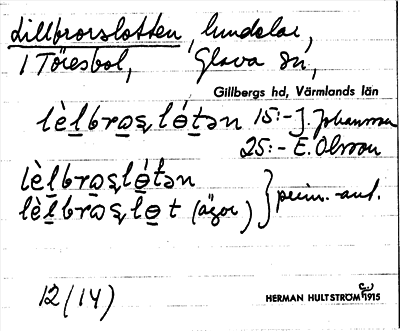 Lillbrorslotten, lundelar,
i Töresbol, Glava sn,
Gillbergs hd, Värmlands län
lèl̲bro̲ʂlɵ́t̲ən 15:- J. Johansson
25:- E. Olsson
lèl̲bra̲ʂlɵ́t̲ən
lèl̲bra̲ʂlɵ̲t (ägor) } prim.-ant.
12/14)
HERMAN HULTSTRÖM 1915